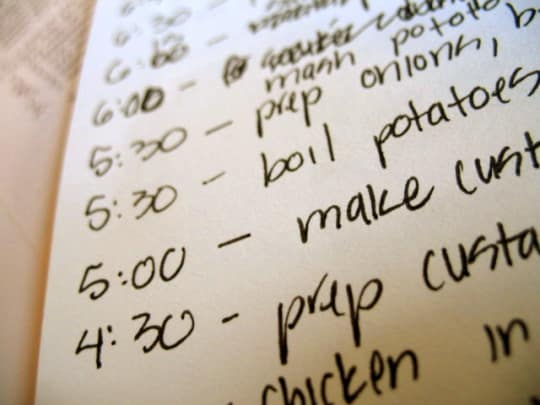 6:30 -
6:00 -
6:00 -
mash potato
5:30 - prep onions, b
5:30 - boil potatoes
5:00 - make cust
4:30 - prep custa
chicken in